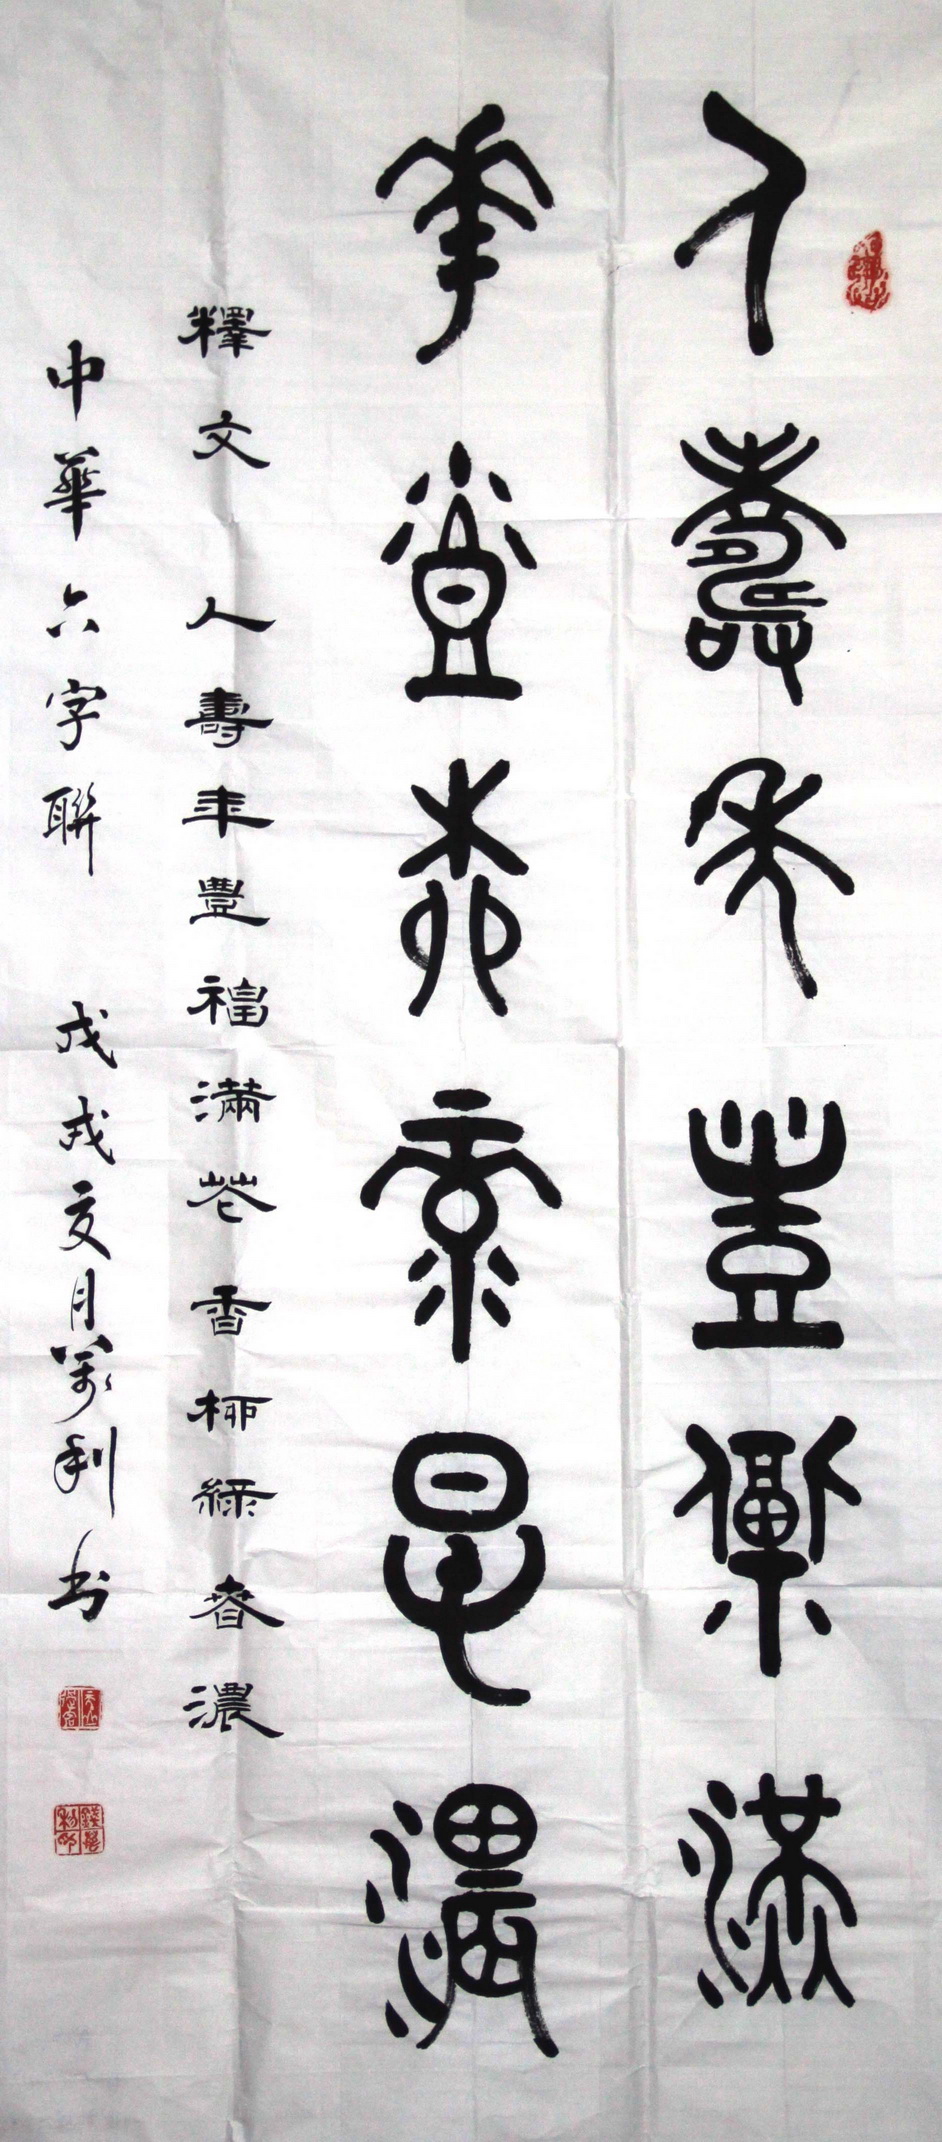 人壽年豐福滿
花香柳綠春濃
釋文 人壽年豐福滿花香柳綠春濃
中華六字聯 戊戌夏月萬利书